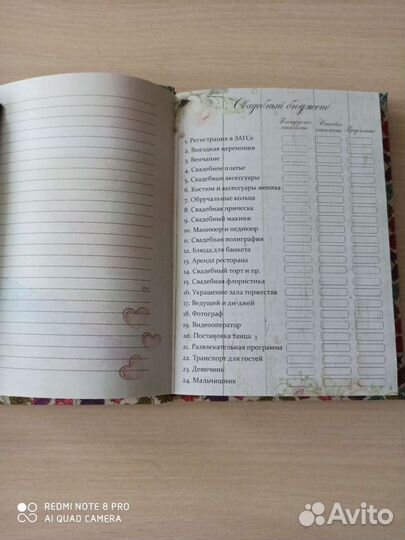 Свадебный бюджет
Планируемая стоимость
Итоговая стоимость
Предоплата
1. Регистрация в ЗАГСе
2. Выездная церемония
3. Венчание
4. Свадебное платье
5. Свадебные аксессуары
6. Костюм и аксессуары жениха
7. Обручальные кольца
8. Свадебная прическа
9. Свадебный макияж
10. Маникюр и педикюр
11. Свадебная полиграфия
12. Блюда для банкета
13. Аренда ресторана
14. Свадебный торт и пр.
15. Свадебная флористика
16. Украшение зала торжества
17. Ведущий и ди-джей
18. Фотограф
19. Видеооператор
20. Постановка танца
21. Развлекательная программа
22. Транспорт для гостей
23. Девичник
24. Мальчишник
REDMI NOTE 8 PRO
AI QUAD CAMERA
Avito